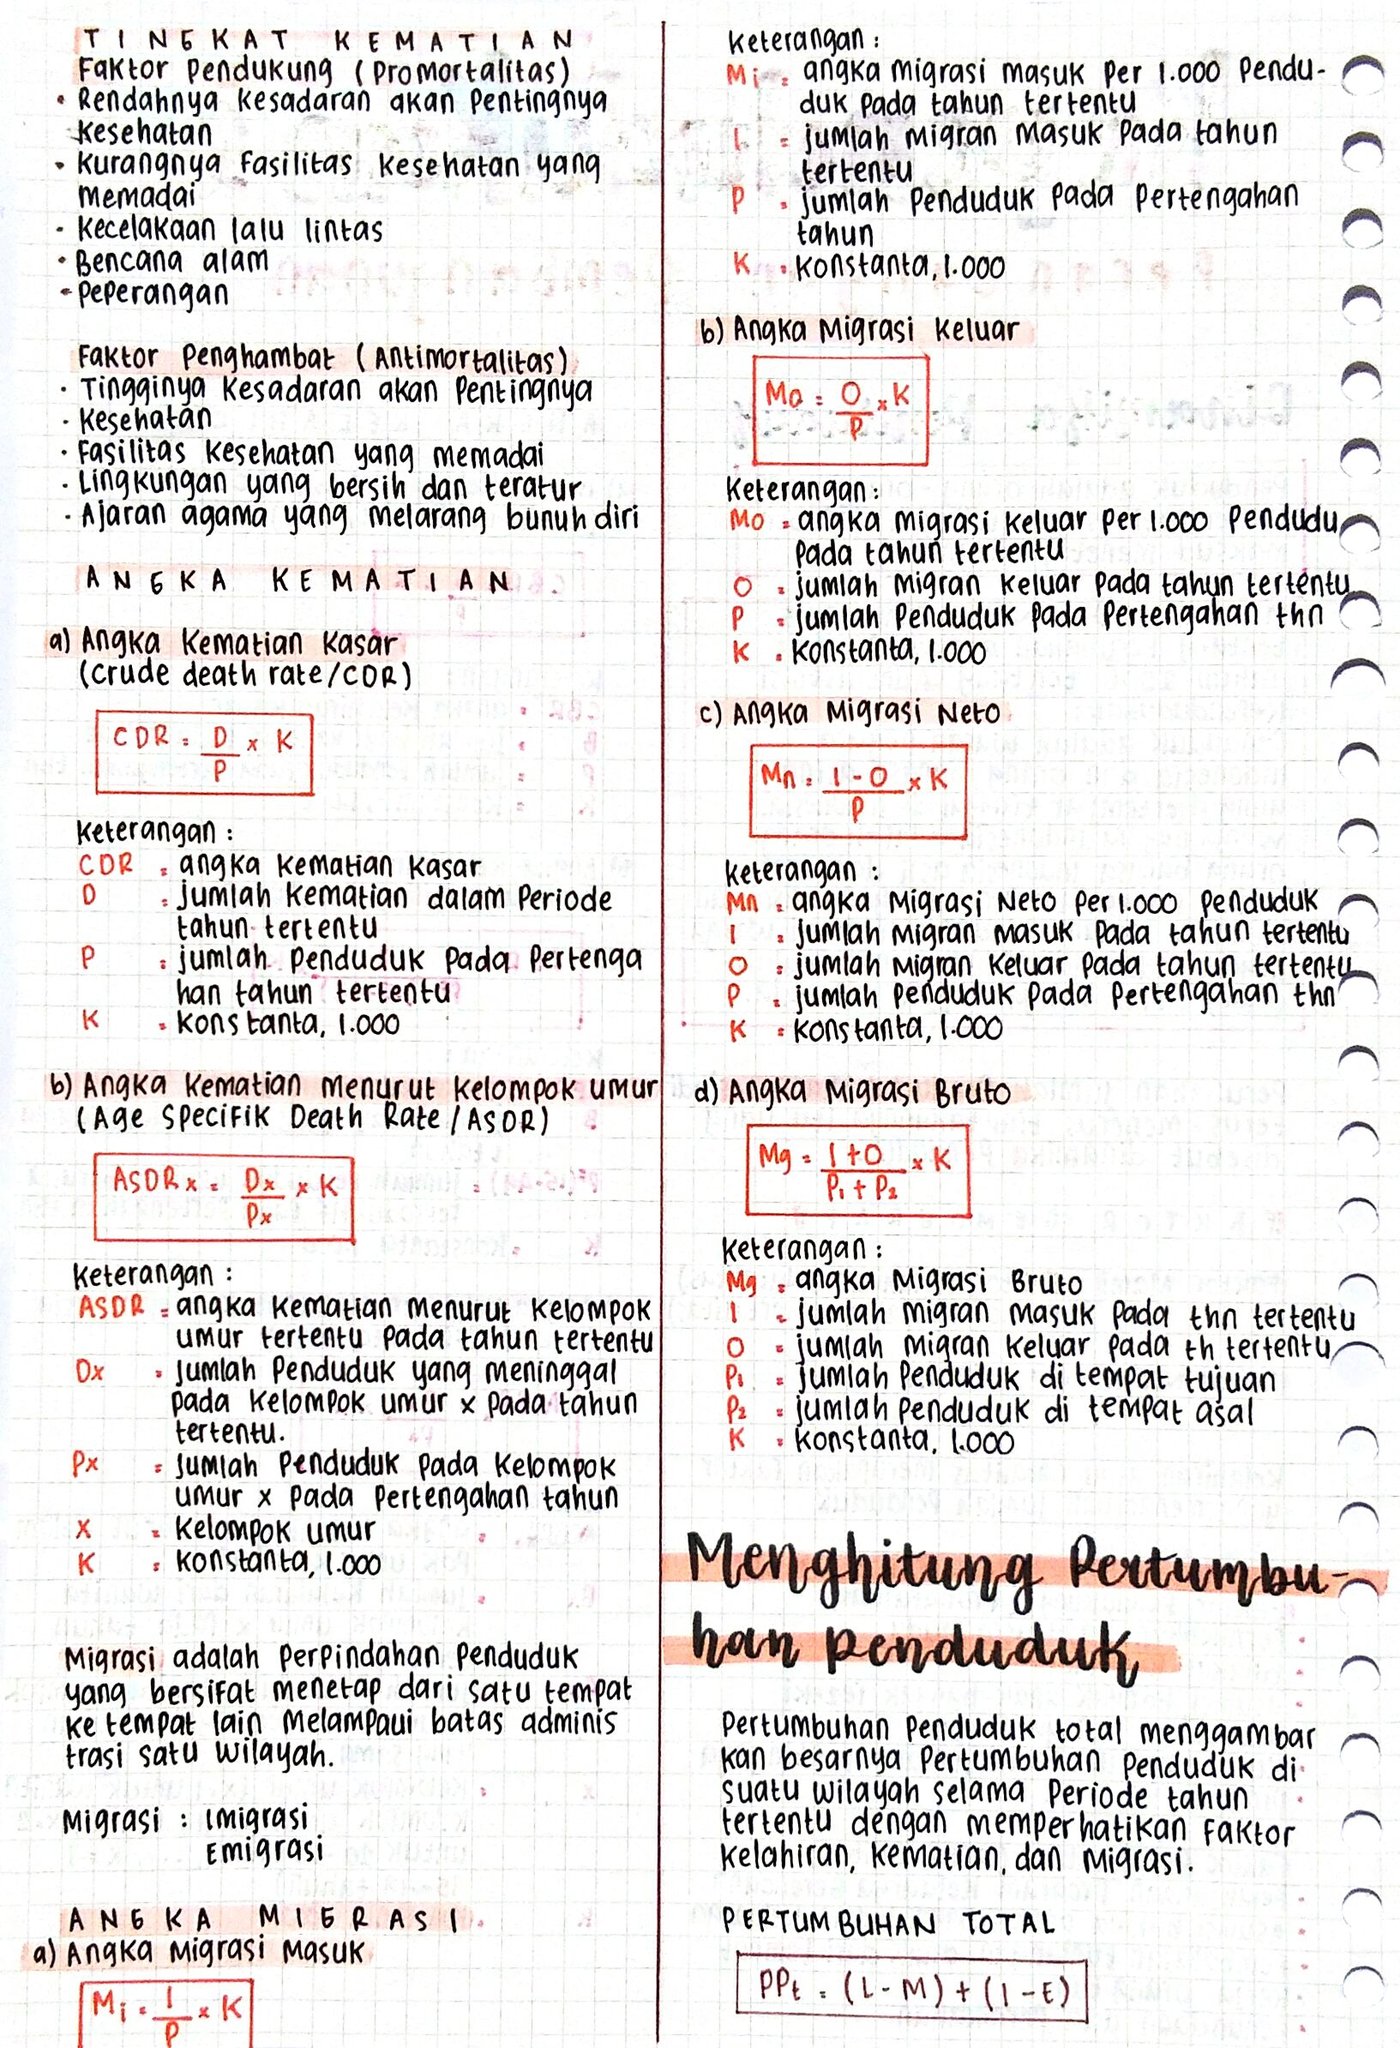 TINGKAT KEMATIAN
Faktor Pendukung (Promortalitas)
• Rendahnya kesadaran akan Pentingnya
kesehatan
• kurangnya Fasilitas kesehatan yang
memadai
• kecelakaan lalu lintas
• Bencana alam
• Peperangan
Faktor Penghambat (Antimortalitas)
• Tingginya kesadaran akan Pentingnya
• kesehatan
• Fasilitas kesehatan yang memadai
• Lingkungan yang bersih dan teratur
• Ajaran agama yang melarang bunuh diri
ANGKA KEMATIAN
a) Angka Kematian Kasar
(Crude death rate/CDR)
CDR = D/P x K
Keterangan :
CDR = angka kematian kasar
D = jumlah kematian dalam Periode
tahun tertentu
P = jumlah Penduduk Pada Pertenga
han tahun tertentu
K = konstanta, 1.000
b) Angka Kematian Menurut Kelompok umur
(Age Specifik Death Rate /ASDR)
ASDRx = Dx/Px x K
Keterangan :
ASDR = angka kematian menurut kelompok
umur tertentu pada tahun tertentu
Dx = Jumlah Penduduk yang meninggal
pada kelompok umur x pada tahun
tertentu.
Px = Jumlah Penduduk pada kelompok
umur x pada Pertengahan tahun
X = kelompok umur
K = konstanta, 1.000
Migrasi adalah Perpindahan Penduduk
yang bersifat menetap dari satu tempat
ke tempat lain Melampaui batas adminis
trasi satu wilayah.
Migrasi : Imigrasi
Emigrasi
ANGKA MIGRASI
a) Angka Migrasi Masuk
Mi = I/P x K
Keterangan :
Mi = angka migrasi masuk Per 1.000 Pendu-
duk pada tahun tertentu
I = jumlah migran Masuk Pada tahun
tertentu
P = jumlah Penduduk Pada Pertengahan
tahun
K = konstanta, 1.000
b) Angka Migrasi Keluar
Mo = O/P x K
Keterangan :
Mo = angka migrasi keluar Per 1.000 Pendudu
pada tahun tertentu
O = jumlah Migran keluar Pada tahun tertentu
P = jumlah Penduduk Pada Pertengahan thn
K = konstanta, 1.000
c) Angka Migrasi Neto
Mn = I - O/P x K
Keterangan :
Mn = angka Migrasi Neto Per 1.000 Penduduk
I = jumlah migran masuk Pada tahun tertentu
O = jumlah Migran Keluar Pada tahun tertentu
P = jumlah Penduduk pada Pertengahan thn
K = konstanta, 1.000
d) Angka Migrasi Bruto
Mg = I + O/P₁ + P₂ x K
Keterangan :
Mg = angka Migrasi Bruto
I = jumlah migran masuk Pada thn tertentu
O = jumlah Migran keluar Pada th tertentu
P₁ = jumlah Penduduk di tempat tujuan
P₂ = jumlah Penduduk di tempat asal
K = konstanta, 1.000
Menghitung Pertumbu-
han penduduk
Pertumbuhan Penduduk total menggambar
kan besarnya Pertumbuhan Penduduk di
suatu wilayah selama Periode tahun
tertentu dengan memperhatikan faktor
kelahiran, kematian, dan Migrasi.
PERTUMBUHAN TOTAL
PPt = (L - M) + (I - E)